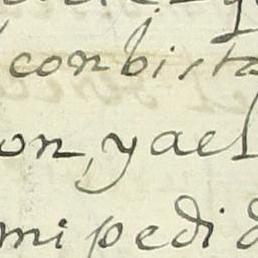 conbista
on, y ael
mi pedi d